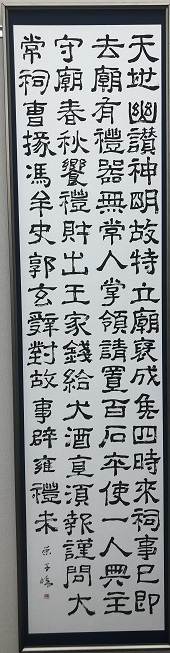 天地幽讚神明故特立廟褒成侯四時來祠事已即
去廟有禮器無常人掌領請置百石卒使一人典主
守廟春秋饗禮財出王家錢給犬酒直須報謹問大
常祠曹掾馮牟史郭玄辭對故事辟雍禮未